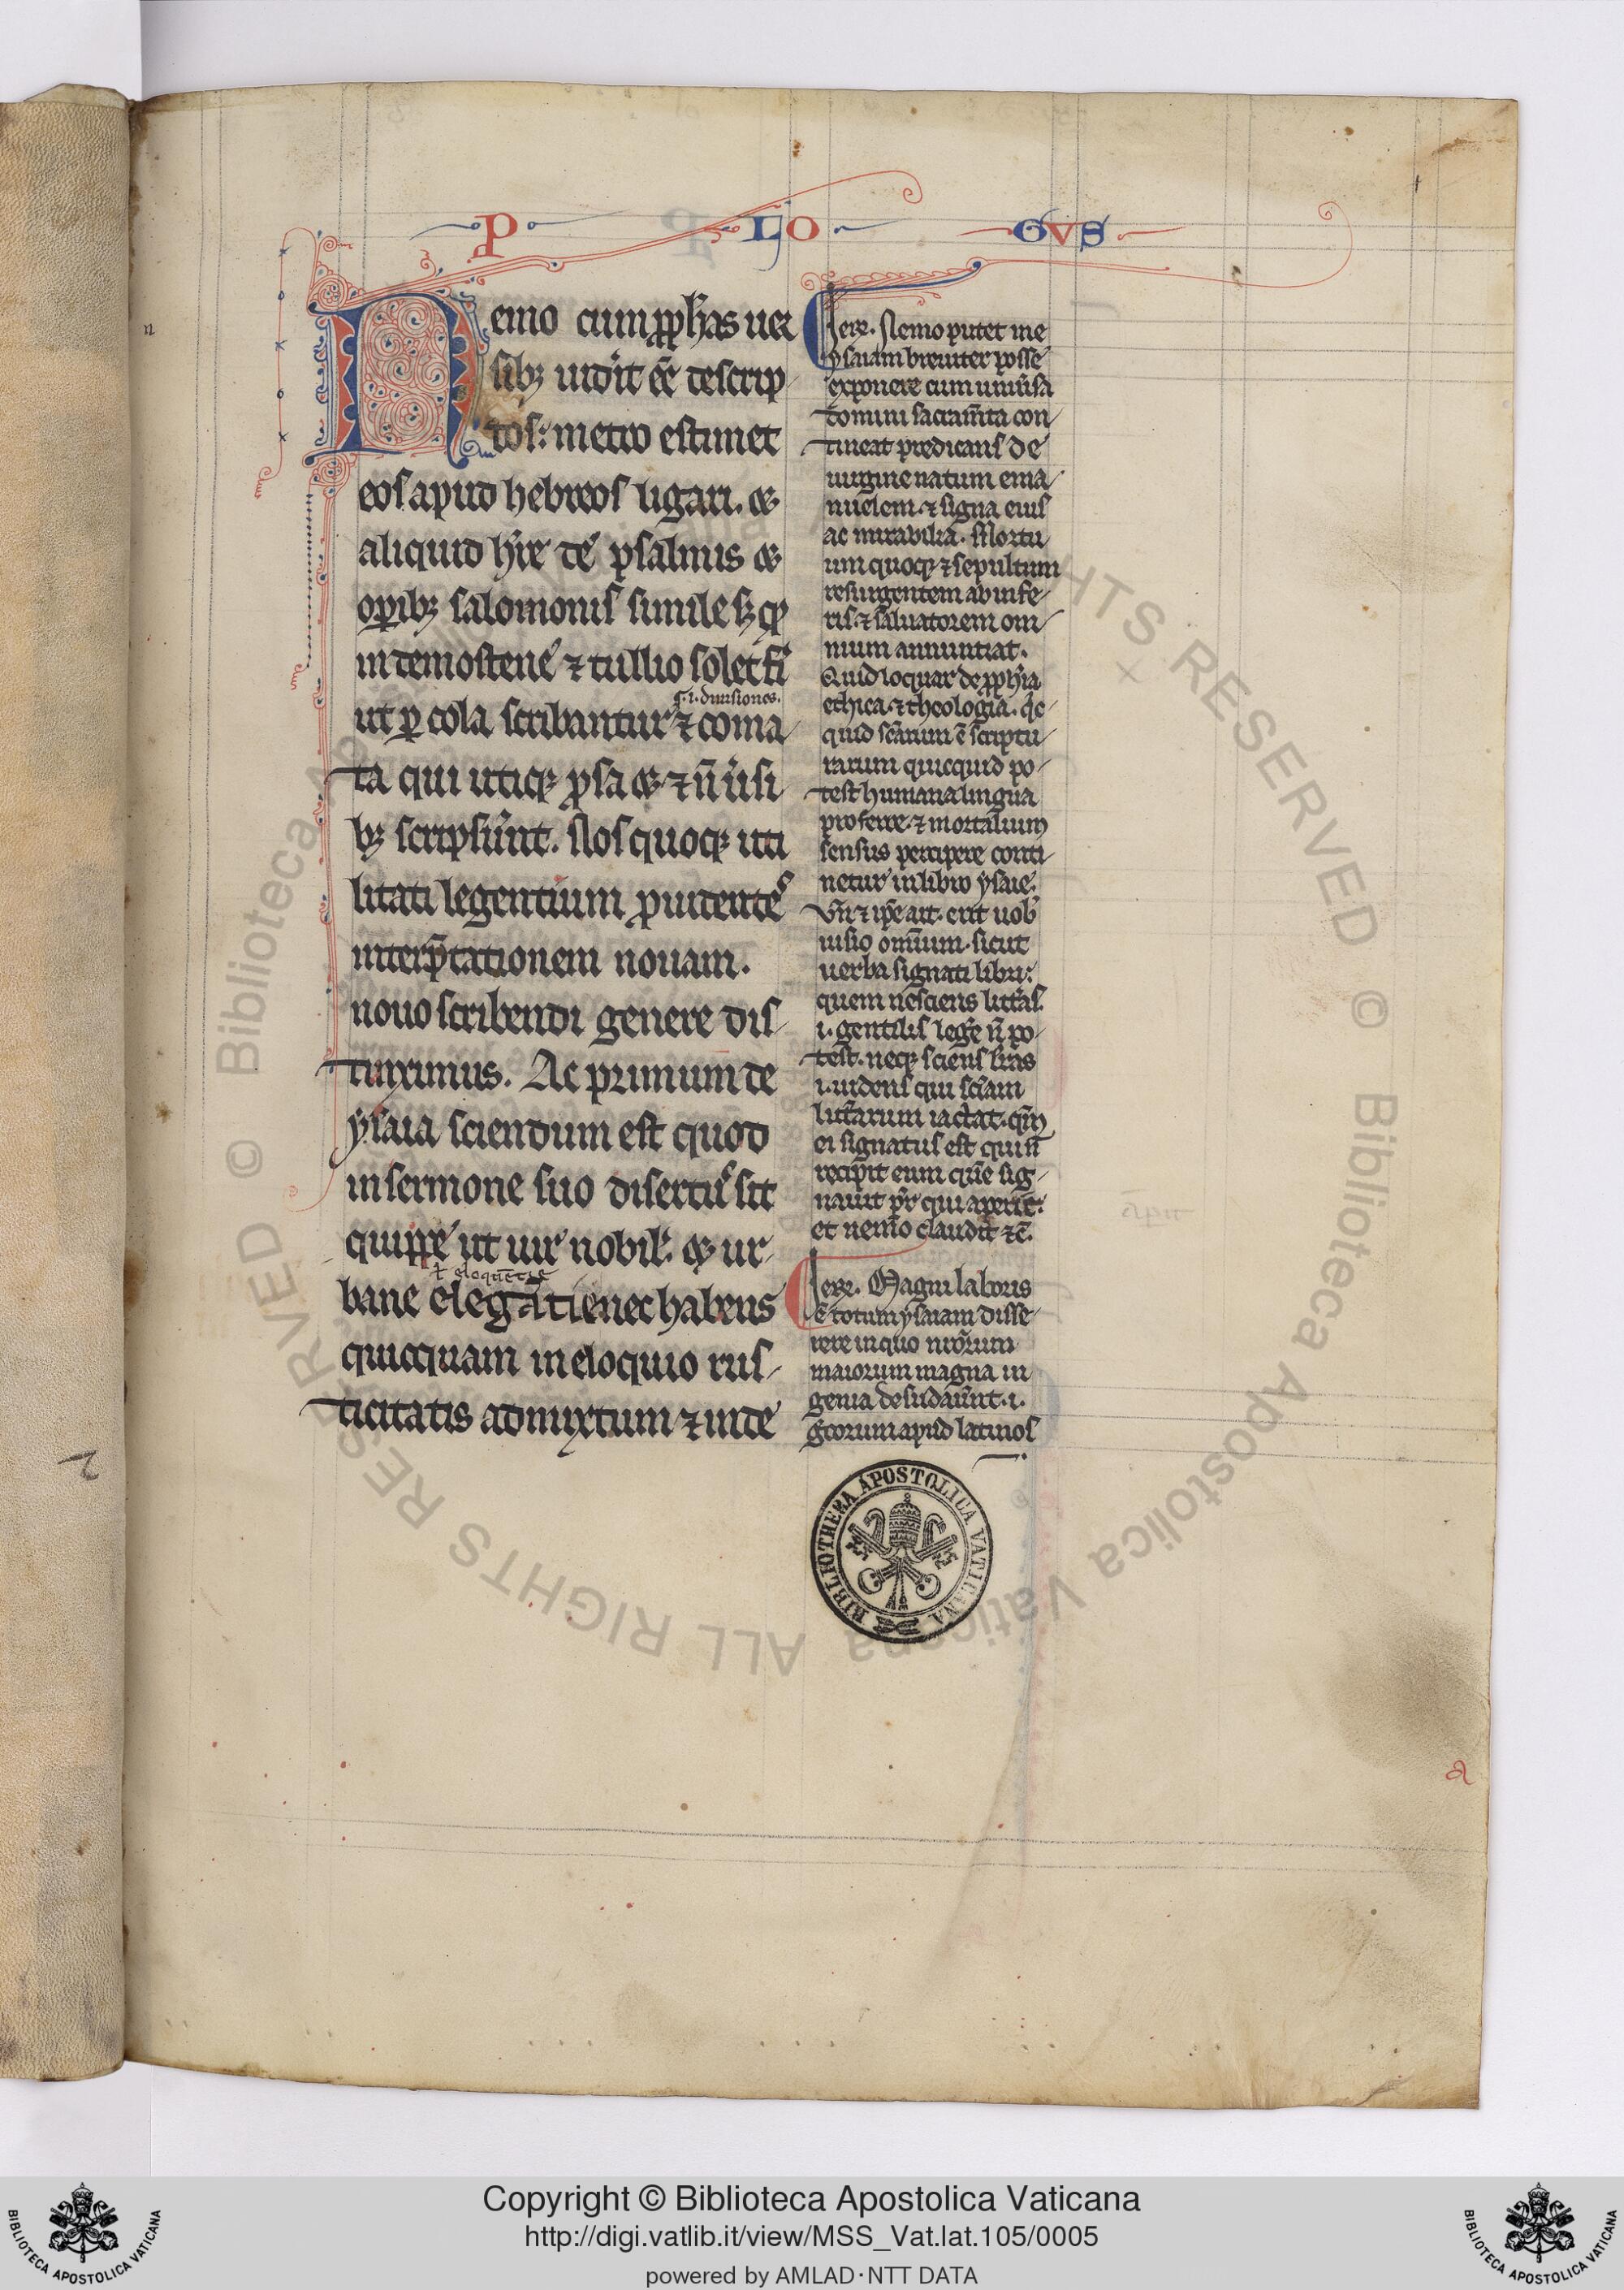 P LO GVS
Nemo cum ꝓphas uer
sibꝫ uidit ēe descrip
tos: metro estimet
eos apud hebreos ligari. ⁊
aliquid h̄re de psalmis ⁊
oꝑibꝫ salomonis simile sꝫ qꝫ
in demostene ⁊ tullio solet fi
.i. diuisiones.
ut ꝑ cola scribantur ⁊ coma
ta qui utiqꝫ ꝓsa ⁊ n̄ ūsi
bꝫ scripsūnt. Nos quoqꝫ uti
litati legentium ꝓuidentes
interp̄tationem nouam.
nouo scribendi genere dis
tinximus. Ac primum de
ysaia sciendum est quod
in sermone suo disertus sit
quippe ut uir nobil: ⁊ ur
ł eloquētie
bane elegātie nec habens
quicquam in eloquio rus
ticitatis admixtum ⁊ inde
Iere. Nemo putet me
ysaiam breuiter posse
exponere cum uniūsa
domini sacram̄ta con
tineat predicans de
uirgine natum ema
nuelem. ⁊ signa eius
ac mirabilia. Mortu
um quoqꝫ ⁊ sepultum
resurgentem ab infe
ris. ⁊ saluatorem om
nium annuntiat.
Quid loquar de ꝓphia
ethica. ⁊ theologia. qic
quid sc̄arum ē scriptu
rarum quicquid po
test humana lingua
proferre. ⁊ mortalium
sensus percipere conti
netur in libro ysaie.
Vn̄ ⁊ ip̄e ait. erit uob
uisio omnium. sicut
uerba signati libri:
quem nesciens litt̄as.
.i. gentilis leḡe n̄ po
test. neqꝫ sciens litt̄as
.i. iudeus qui sc̄iam
litt̄arum iactat. qm̄
ei signatus est qui n̄
recipit eum quē sig
nauit pr̄ qui aperit:
et nemo claudit ⁊c̄.
Iere. Magni laboris
ē totum ysaiam disse
rere in quo nr̄orum
maiorum magna in
genia desudaūnt .i.
grecorum apud latinos
BIBLIOTHECA APOSTOLICA VATICANA
a
© Biblioteca Apostolica Vaticana ALL RIGHTS RESERVED
Copyright © Biblioteca Apostolica Vaticana
http://digi.vatlib.it/view/MSS_Vat.lat.105/0005
powered by AMLAD·NTT DATA
BIBLIOTECA APOSTOLICA VATICANA
BIBLIOTECA APOSTOLICA VATICANA